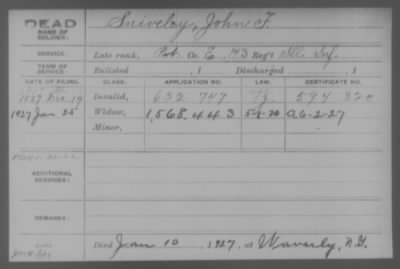 DEAD
NAME OF SOLDIER: Snively, John F.
SERVICE: Late rank, Pvt. Co. E, 143 Reg't Ill. Inf.
TERM OF SERVICE: Enlisted , 1 Discharged , 1
DATE OF FILING. CLASS. APPLICATION NO. LAW. CERTIFICATE NO.
Dec. 19 Invalid, 632 747 594 320
1927 Jan 25 Widow, 1,568,443 5-1-20 A6-2-27
Minor,
ADDITIONAL SERVICES:
REMARKS:
Died Jan 10, 1927, at Waverly, N.Y.